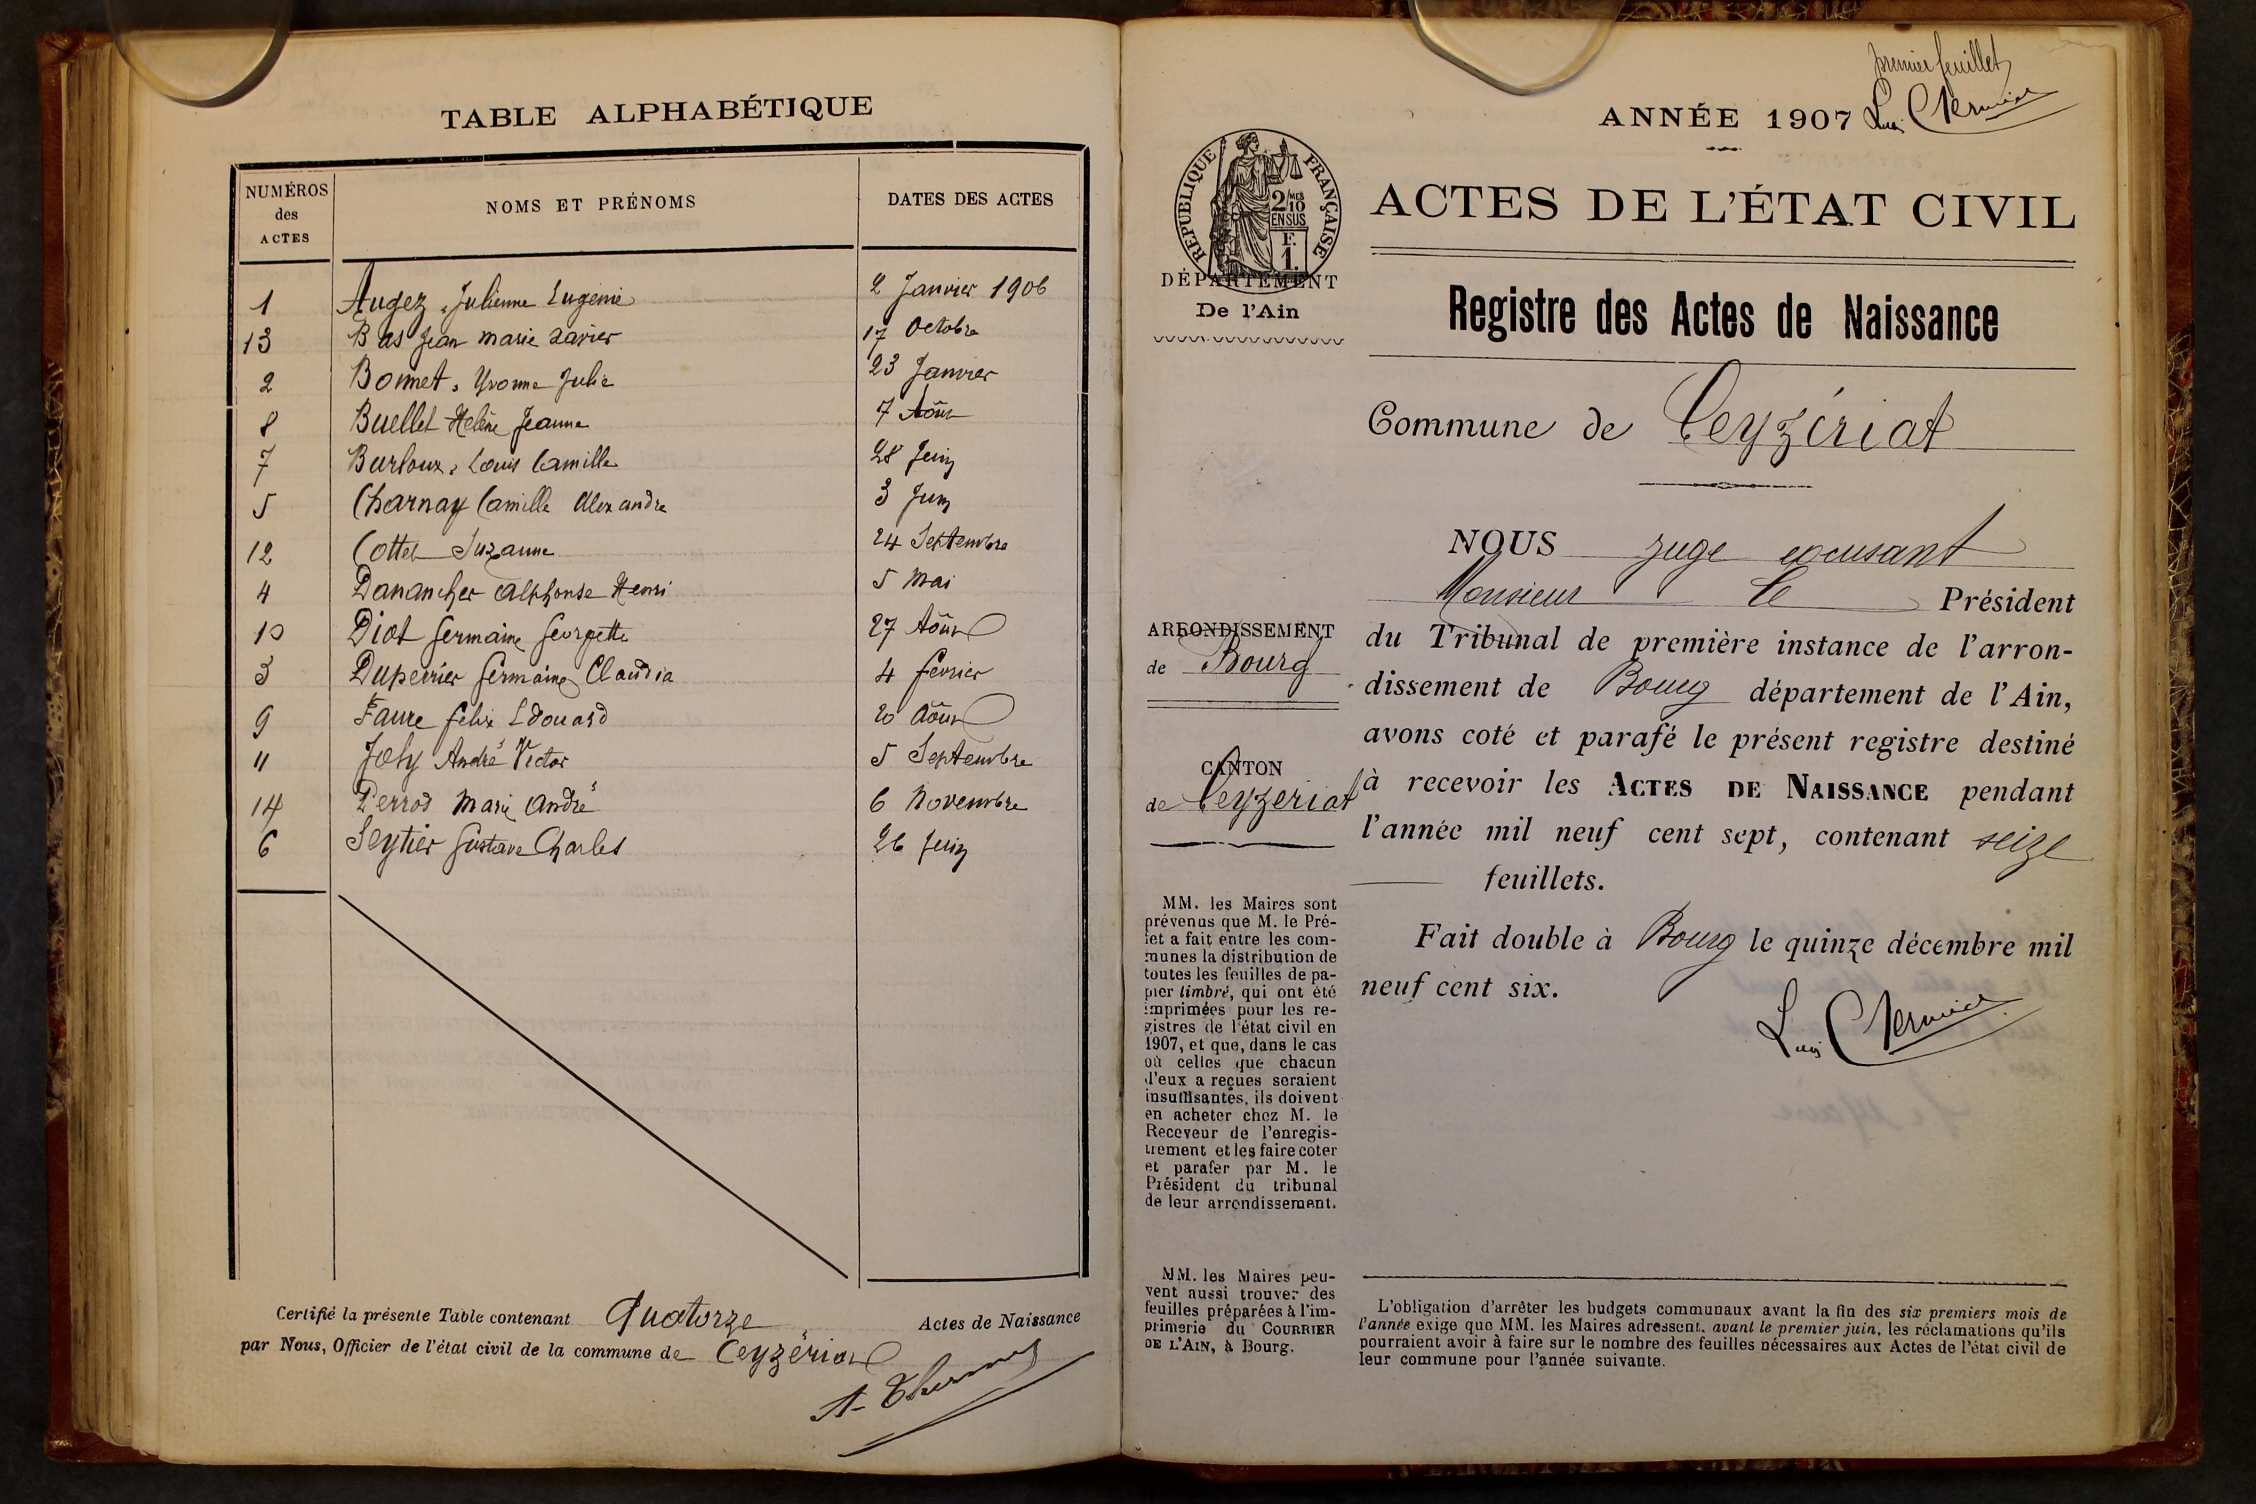 TABLE ALPHABÉTIQUE
NUMÉROS des ACTES NOMS ET PRÉNOMS DATES DES ACTES
1 Augez, Julienne Eugénie 2 Janvier 1906
13 Bas Jean Marie Xavier 17 Octobre
2 Bonnet, Yvonne Julie 23 Janvier
8 Buellet Hélène Jeanne 7 Août
7 Burloux, Louis Camille 28 Juin
5 Charnay Camille Alexandre 3 Juin
12 Cottet Suzanne 24 Septembre
4 Danancher Alphonse Henri 5 Mai
10 Diot Germaine Georgette 27 Août
3 Duperrier Germaine Claudia 4 Février
9 Faure Félix Edouard 20 Août
11 Joly André Victor 5 Septembre
14 Perrod Marie André 6 Novembre
6 Seytier Gustave Charles 26 Juin
Certifié la présente Table contenant Quatorze Actes de Naissance
par Nous, Officier de l'état civil de la commune de Ceyzériat
premier feuillet
ANNÉE 1907
RÉPUBLIQUE FRANÇAISE
2/10 MES
EN SUS
F.
1.
DÉPARTEMENT
De l'Ain
ACTES DE L'ÉTAT CIVIL
Registre des Actes de Naissance
Commune de Ceyzériat
ARRONDISSEMENT
de Bourg
CANTON
de Ceyzeriat
MM. les Maires sont
prévenus que M. le Pré-
fet a fait entre les com-
munes la distribution de
toutes les feuilles de pa-
pier timbré, qui ont été
imprimées pour les re-
gistres de l'état civil en
1907, et que, dans le cas
où celles que chacun
d'eux a reçues seraient
insuffisantes, ils doivent
en acheter chez M. le
Receveur de l'enregis-
trement et les faire coter
et parafer par M. le
Président du tribunal
de leur arrondissement.
MM. les Maires peu-
vent aussi trouver des
feuilles préparées à l'im-
primerie du COURRIER
DE L'AIN, à Bourg.
NOUS juge excusant
Monsieur le Président
du Tribunal de première instance de l'arron-
dissement de Bourg département de l'Ain,
avons coté et parafé le présent registre destiné
à recevoir les ACTES DE NAISSANCE pendant
l'année mil neuf cent sept, contenant seize
feuillets.
Fait double à Bourg le quinze décembre mil
neuf cent six.
L'obligation d'arrêter les budgets communaux avant la fin des six premiers mois de
l'année exige que MM. les Maires adressent, avant le premier juin, les réclamations qu'ils
pourraient avoir à faire sur le nombre des feuilles nécessaires aux Actes de l'état civil de
leur commune pour l'année suivante.